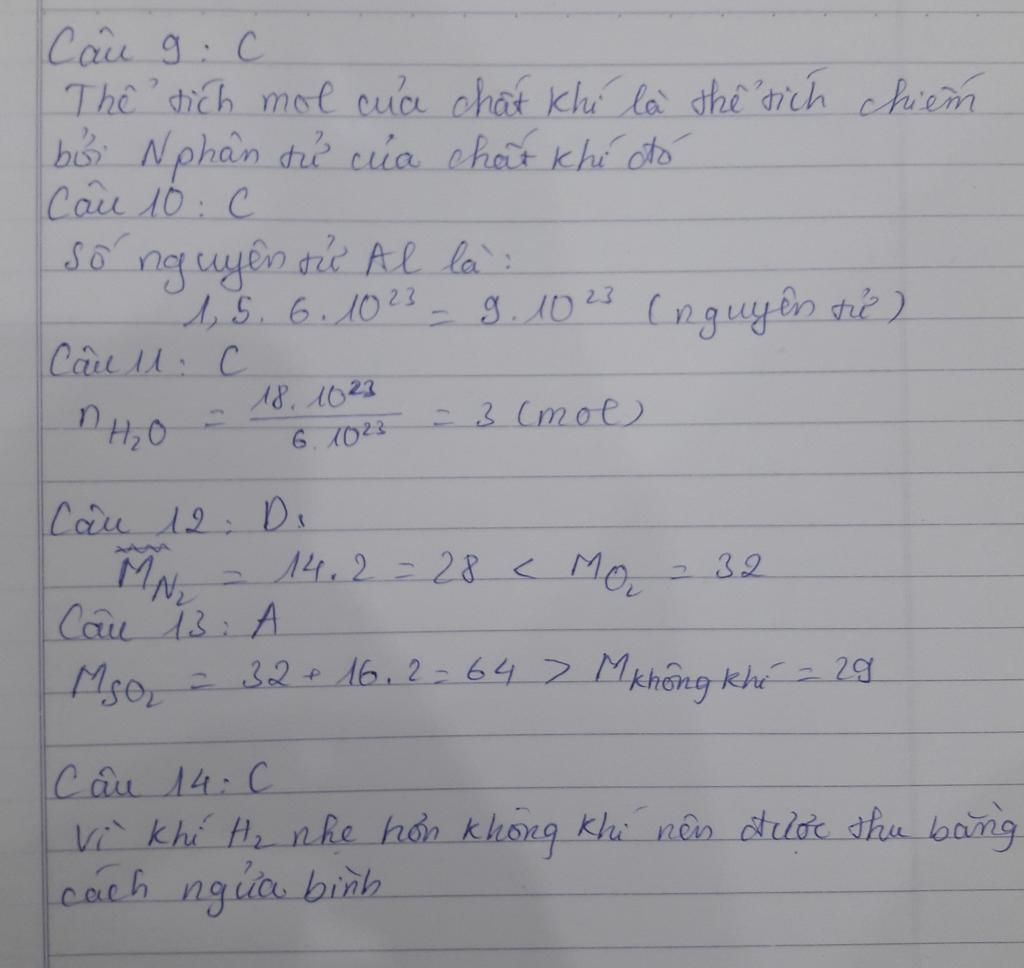 Câu 9: C
Thể tích mol của chất khí là thể tích chiếm
bởi N phân tử của chất khí đó
Câu 10: C
Số nguyên tử Al là:
1,5. 6.10²³ = 9.10²³ (nguyên tử)
Câu 11: C
n H₂O = 18.10²³ / 6.10²³ = 3 (mol)
Câu 12: D.
M N₂ = 14.2 = 28 < M O₂ = 32
Câu 13: A
M SO₂ = 32 + 16.2 = 64 > M không khí = 29
Câu 14: C
Vì khí H₂ nhẹ hơn không khí nên được thu bằng
cách ngửa bình